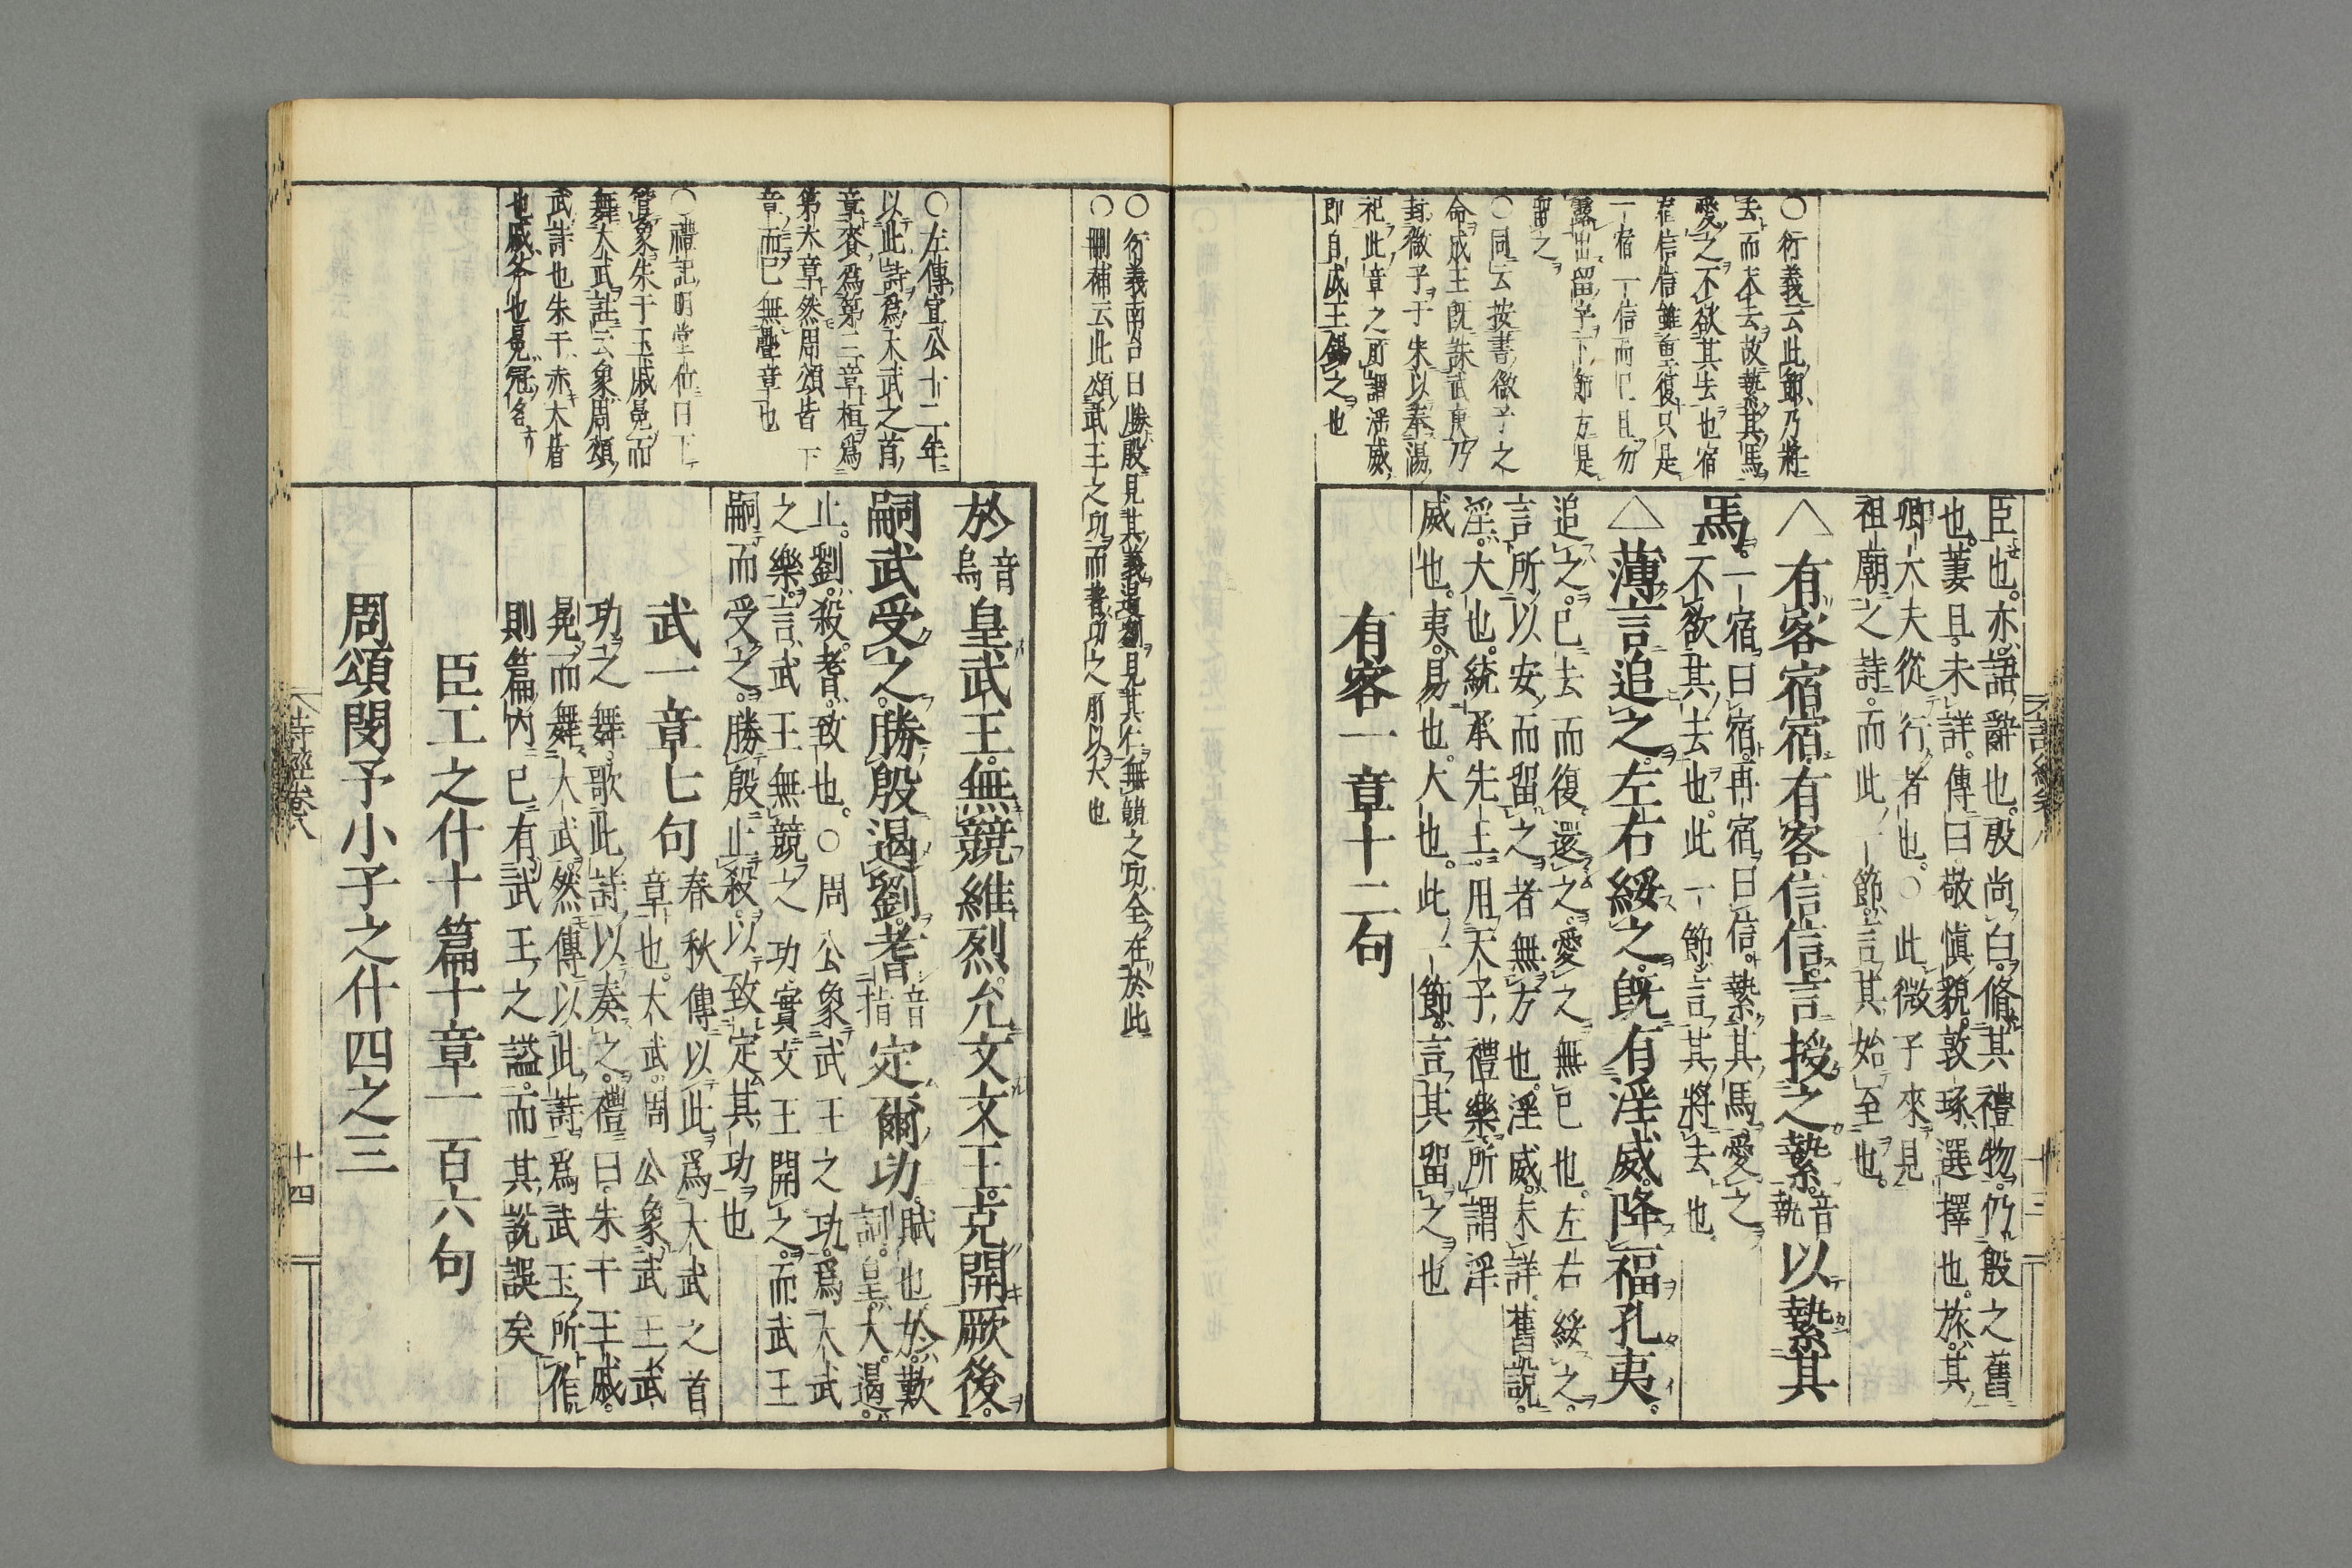 〇衍義云此節乃將
去而未去故縶其馬
愛之不欲其去也宿
宿信信雖重復只是
一宿一信而已且勿
露出留字下節方是
留之
〇同云按書微子之
命成王旣誅武庚乃
封微子于宋以奉湯
祀此章之所謂淫威
即自成王錫之也
臣也亦語辭也殷尚白脩其禮物仍殷之舊
也萋且未詳傳曰敬愼貌敦琢選擇也旅其
卿大夫從行者也〇此微子來見
祖廟之詩而此一節言其始至也
△有客宿宿有客信信言授之縶音執以縶其
馬一宿曰宿再宿曰信縶其馬愛之
不欲其去也此一節言其將去也
△薄言追之左右綏之旣有淫威降福孔夷
追之已去而復還之愛之無已也左右綏之
言所以安而留之者無方也淫威未詳舊說
淫大也統承先王用天子禮樂所謂淫
威也夷易也大也此一節言其留之也
有客一章十二句
大詩經卷八
十三
〇衍義南台曰勝殷見其義遏劉見其仁無競之功全在於此
〇刪補云此頌武王之功而耆功之所以大也
〇左傳宣公十二年
以此詩爲大武之首
章賚爲第三章桓爲
第六章然周頌皆下
章而已無疊章也
〇禮記明堂位曰下
管象朱干玉戚冕而
舞大武註云象周頌
武詩也朱干赤大盾
也戚斧也冕冠名
於音烏皇武王無競維烈允文文王克開厥後
嗣武受之勝殷遏劉耆音指定爾功賦也於歎詞皇大遏
止劉殺耆致也〇周公象武王之功爲大武
之樂言武王無競之功實文王開之而武王
嗣而受之勝殷止殺以致定其功也
武一章七句春秋傳以此爲大武之首
章也大武周公象武王武
功之舞歌此詩以奏之禮曰朱干玉戚
冕而舞大武然傳以此詩爲武王所作
則篇內已有武王之謚而其說誤矣
臣工之什十篇十章一百六句
周頌閔予小子之什四之三
詩經卷八
十四